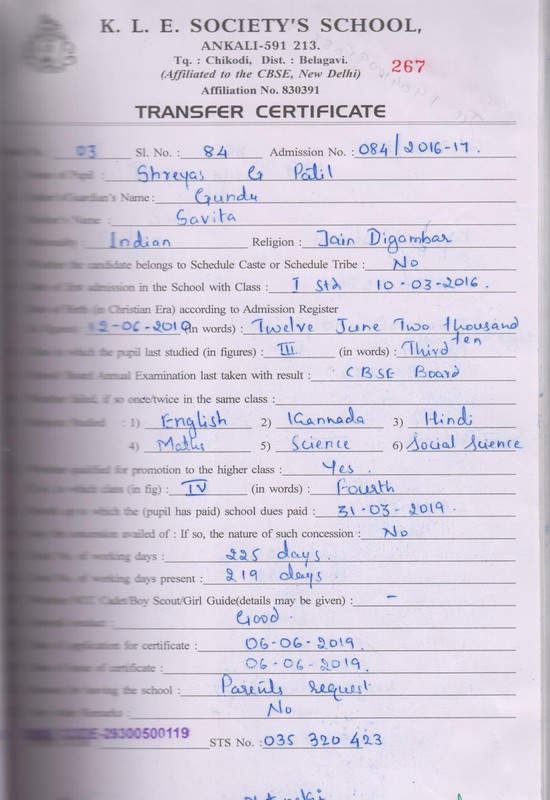 K. L. E. SOCIETY'S SCHOOL,
ANKALI-591 213.
Tq. : Chikodi, Dist. : Belagavi.
(Affiliated to the CBSE, New Delhi)
267
Affiliation No. 830391
TRANSFER CERTIFICATE
03 Sl. No. : 84 Admission No. : 084/2016-17.
Pupil : Shreyas G Patil
Guardian's Name : Gundu
Name : Savita
Indian Religion : Jain Digambar
the candidate belongs to Schedule Caste or Schedule Tribe : No
first admission in the School with Class : I Std 10-03-2016.
Birth (in Christian Era) according to Admission Register
12-06-2010 (in words) : Twelve June Two thousand ten
in which the pupil last studied (in figures) : III (in words) : Third
Board Annual Examination last taken with result : CBSE Board
failed, if so once/twice in the same class :
Studied : 1) English 2) Kannada 3) Hindi
4) Maths 5) Science 6) Social Science
qualified for promotion to the higher class : Yes.
which class (in fig) : IV (in words) : Fourth
up to which the (pupil has paid) school dues paid : 31-03-2019.
concession availed of : If so, the nature of such concession : No
No. of working days : 225 days.
No. of working days present : 219 days.
NCC Cadet/Boy Scout/Girl Guide(details may be given) : -
Good.
of application for certificate : 06-06-2019.
of issue of certificate : 06-06-2019.
leaving the school : Parents request
Remarks : No
CODE-29300500119
STS No. : 035 320 423